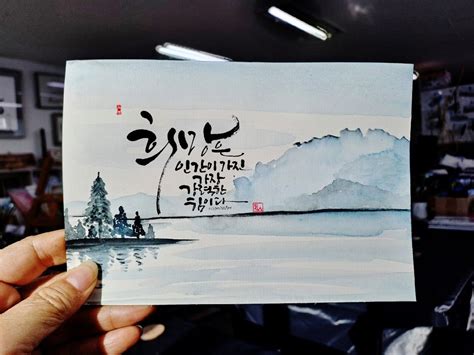 희망은
인간이 가진
가장
강력한
힘이다